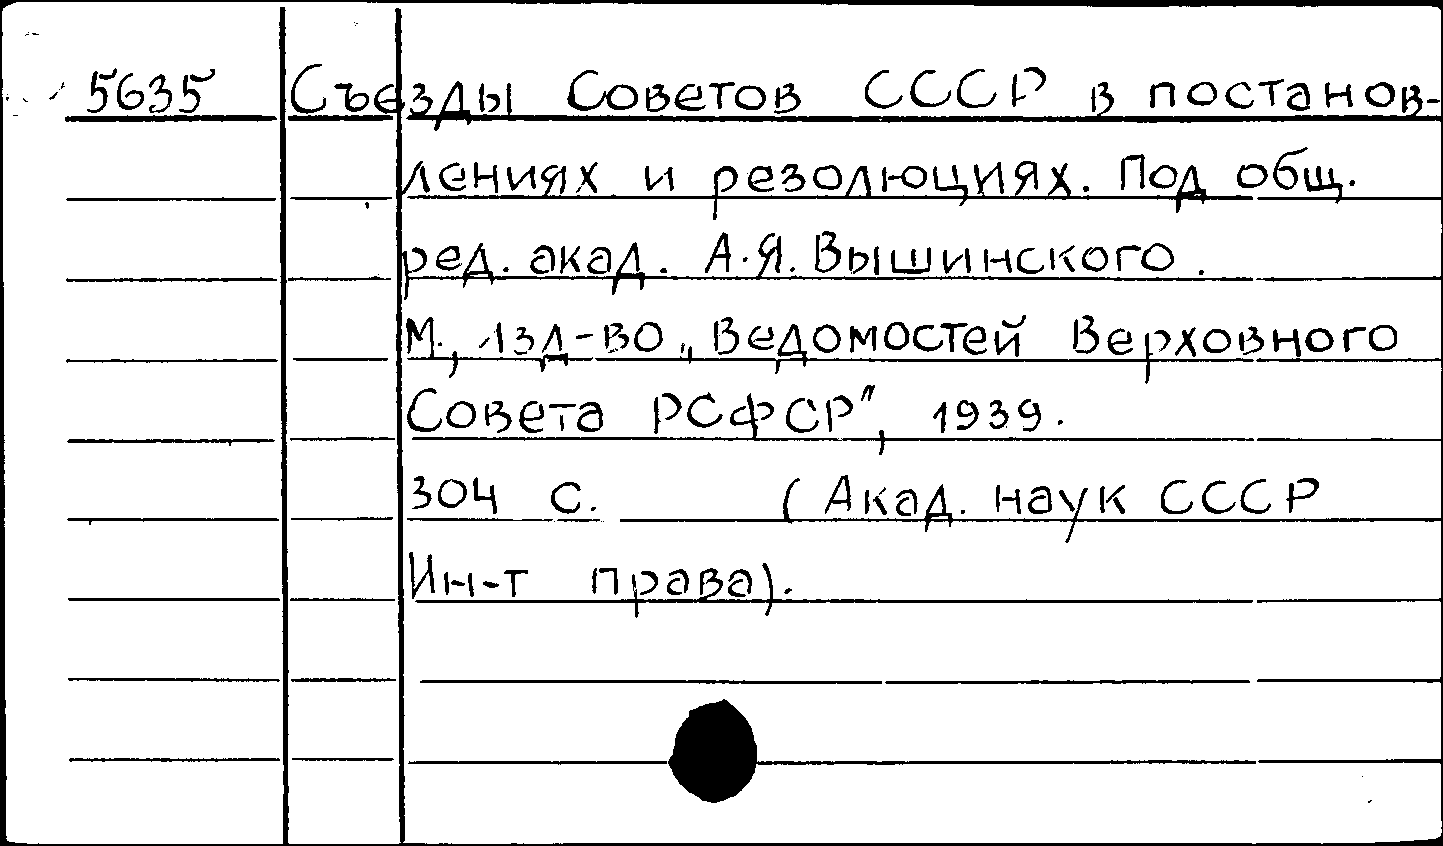 5635 Съезды Советов СССР в постанов-
лениях и резолюциях. Под общ.
ред. акад. А.Я. Вышинского.
М., Изд-во „Ведомостей Верховного
Совета РСФСР", 1939.
304 с. (Акад. наук СССР
Ин-т права).